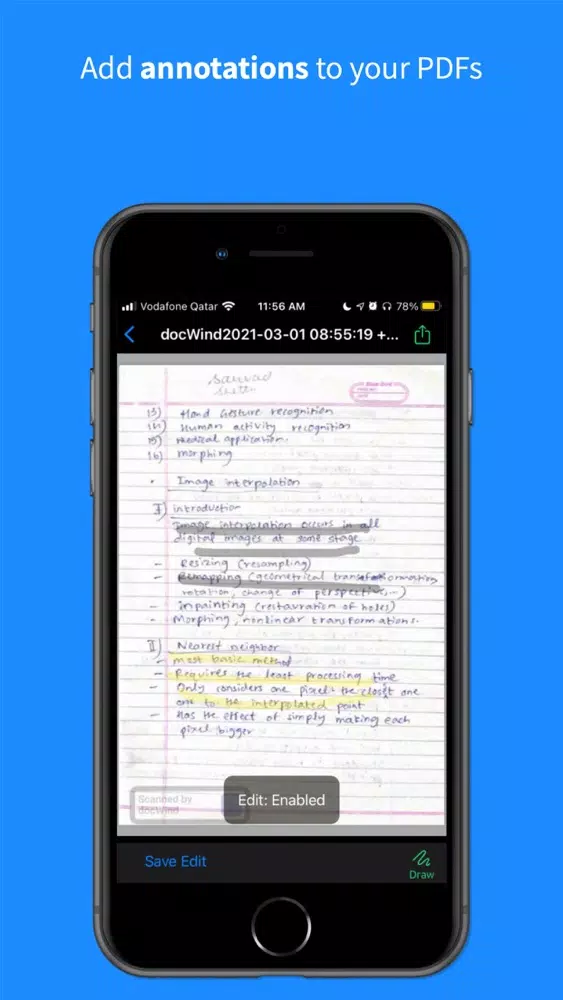 Add annotations to your PDFs
Vodafone Qatar 11:56 AM 78%
docWind2021-03-01 08:55:19 +...
13) Hand Gesture recognition
14) Human activity recognition
15) Medical application.
16) morphing
• Image interpolation
I) introduction
Image interpolation occurs in all
digital images at some stage
- Resizing (resampling)
- Remapping (geometrical transformation,
rotation, change of perspective,...)
- inpainting (restauration of holes)
- Morphing, nonlinear transformations.
II) Nearest neighbor
- most basic method
- Requires the least processing time
- Only considers one pixel: the closet one
one to the interpolated point
- Has the effect of simply making each
pixel bigger
Scanned by
docWind
Edit: Enabled
Save Edit
Draw